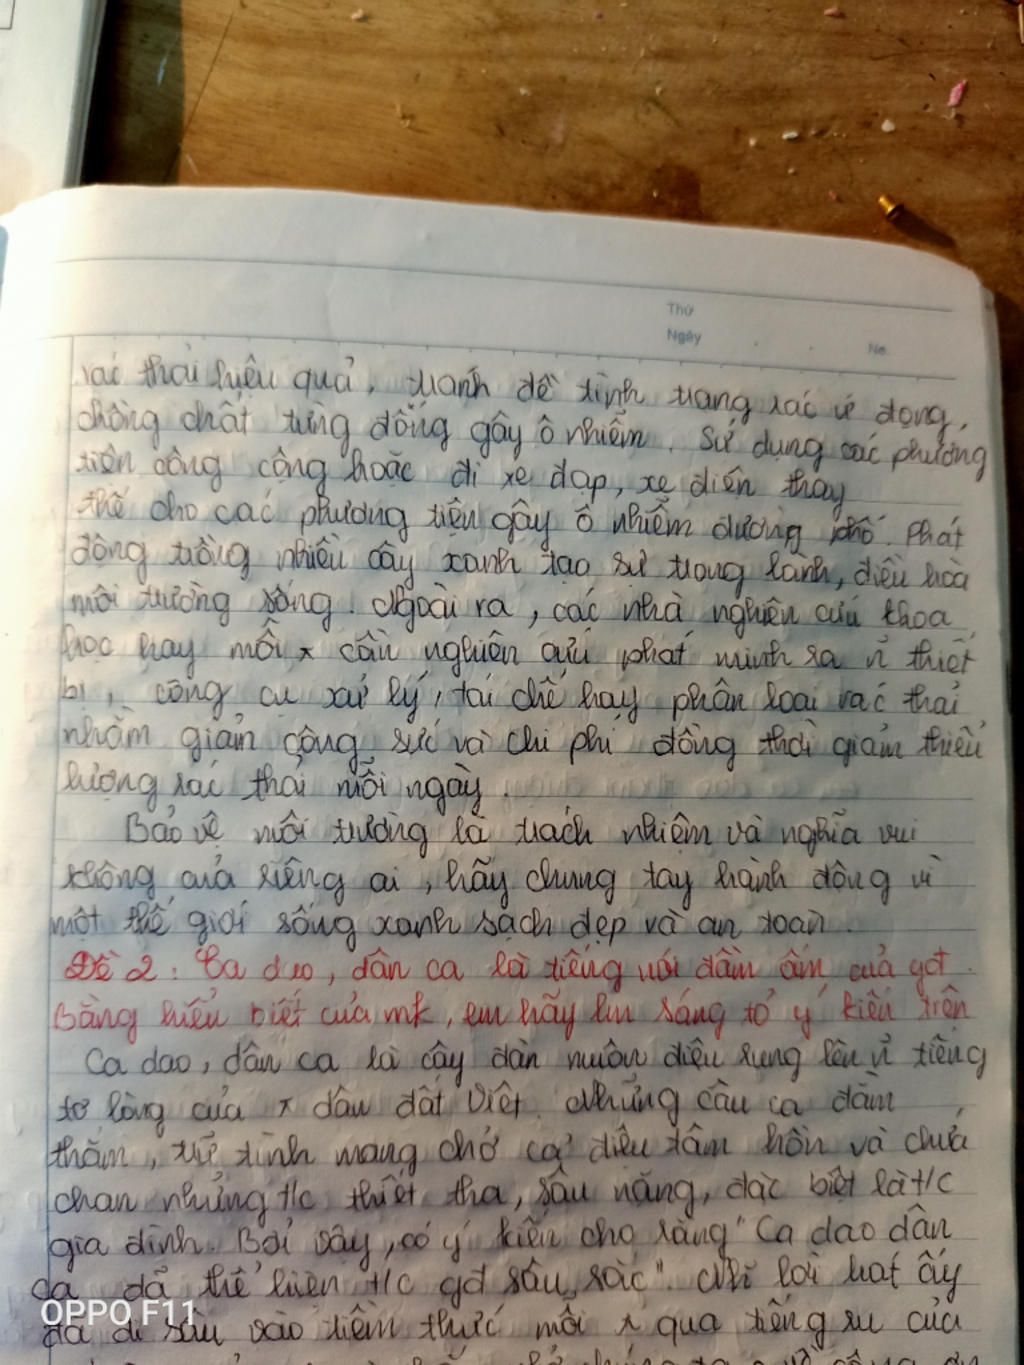 Thứ
Ngày
No.
rác thải hiệu quả, tránh để tình trạng rác ứ đọng,
chồng chất từng đống gây ô nhiễm. Sử dụng các phương
tiện công cộng hoặc đi xe đạp, xe điện thay
thế cho các phương tiện gây ô nhiễm đường phố. Phát
động trồng nhiều cây xanh tạo sự trong lành, điều hòa
môi trường sống. Ngoài ra, các nhà nghiên cứu khoa
học hay mỗi x cần nghiên cứu phát minh ra n~ thiết
bị, công cụ xử lý, tái chế hay phân loại rác thải
nhằm giản công sức và chi phí đồng thời giảm thiểu
lượng rác thải mỗi ngày.
Bảo vệ môi trường là trách nhiệm và nghĩa vụ
không của riêng ai, hãy chung tay hành động vì
một thế giới sống xanh sạch đẹp và an toàn.
Đề 2: Ca dao, dân ca là tiếng nói đầm ấm của gđ.
Bằng hiểu biết của mk, em hãy lm sáng tỏ ý kiến trên
Ca dao, dân ca là cây đàn muôn điệu rung lên n~ tiếng
tơ lòng của x dân đất Việt. Những câu ca đằm
thắm, trữ tình mang chở cả điệu tâm hồn và chứa
chan những t/c thiết tha, sâu nặng, đặc biệt là t/c
gia đình. Bởi vậy, có ý kiến cho rằng "Ca dao dân
ca đã thể hiện t/c gđ sâu sắc". Những lời hát ấy
đã đi sâu vào tiềm thức mỗi x qua tiếng ru của
OPPO F11